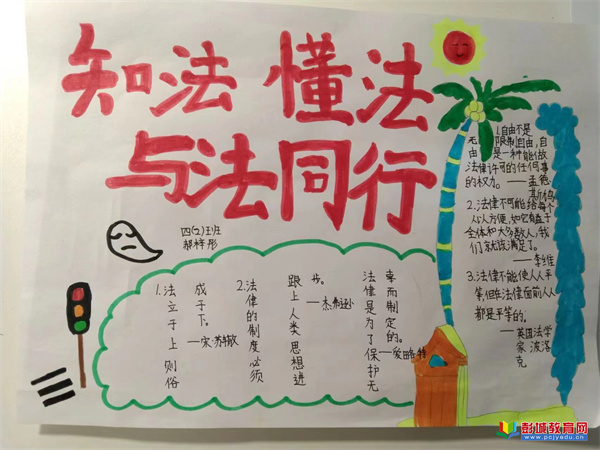 知法 懂法
与法同行
四(2)班
郝梓彤
1.法立于上则俗
成于下。
—宋·苏辙
2.法律的制度必须
跟上人类思想进
步。
—杰弗逊
法律是为了保护无
辜而制定的。
—爱略特
1.自由不是
无限制自由,自
由是一种能做
法律许可的任何事
的权力。——孟德
斯鸠
2.法律不可能给每个
人以方便,如它有益于
全体和大多数人,我
们就该满足了。
——李维
3.法律不能使人人平
等,但在法律面前人人
都是平等的。
——英国法学
家波洛
克
彭城教育网
www.pcjyedu.cn